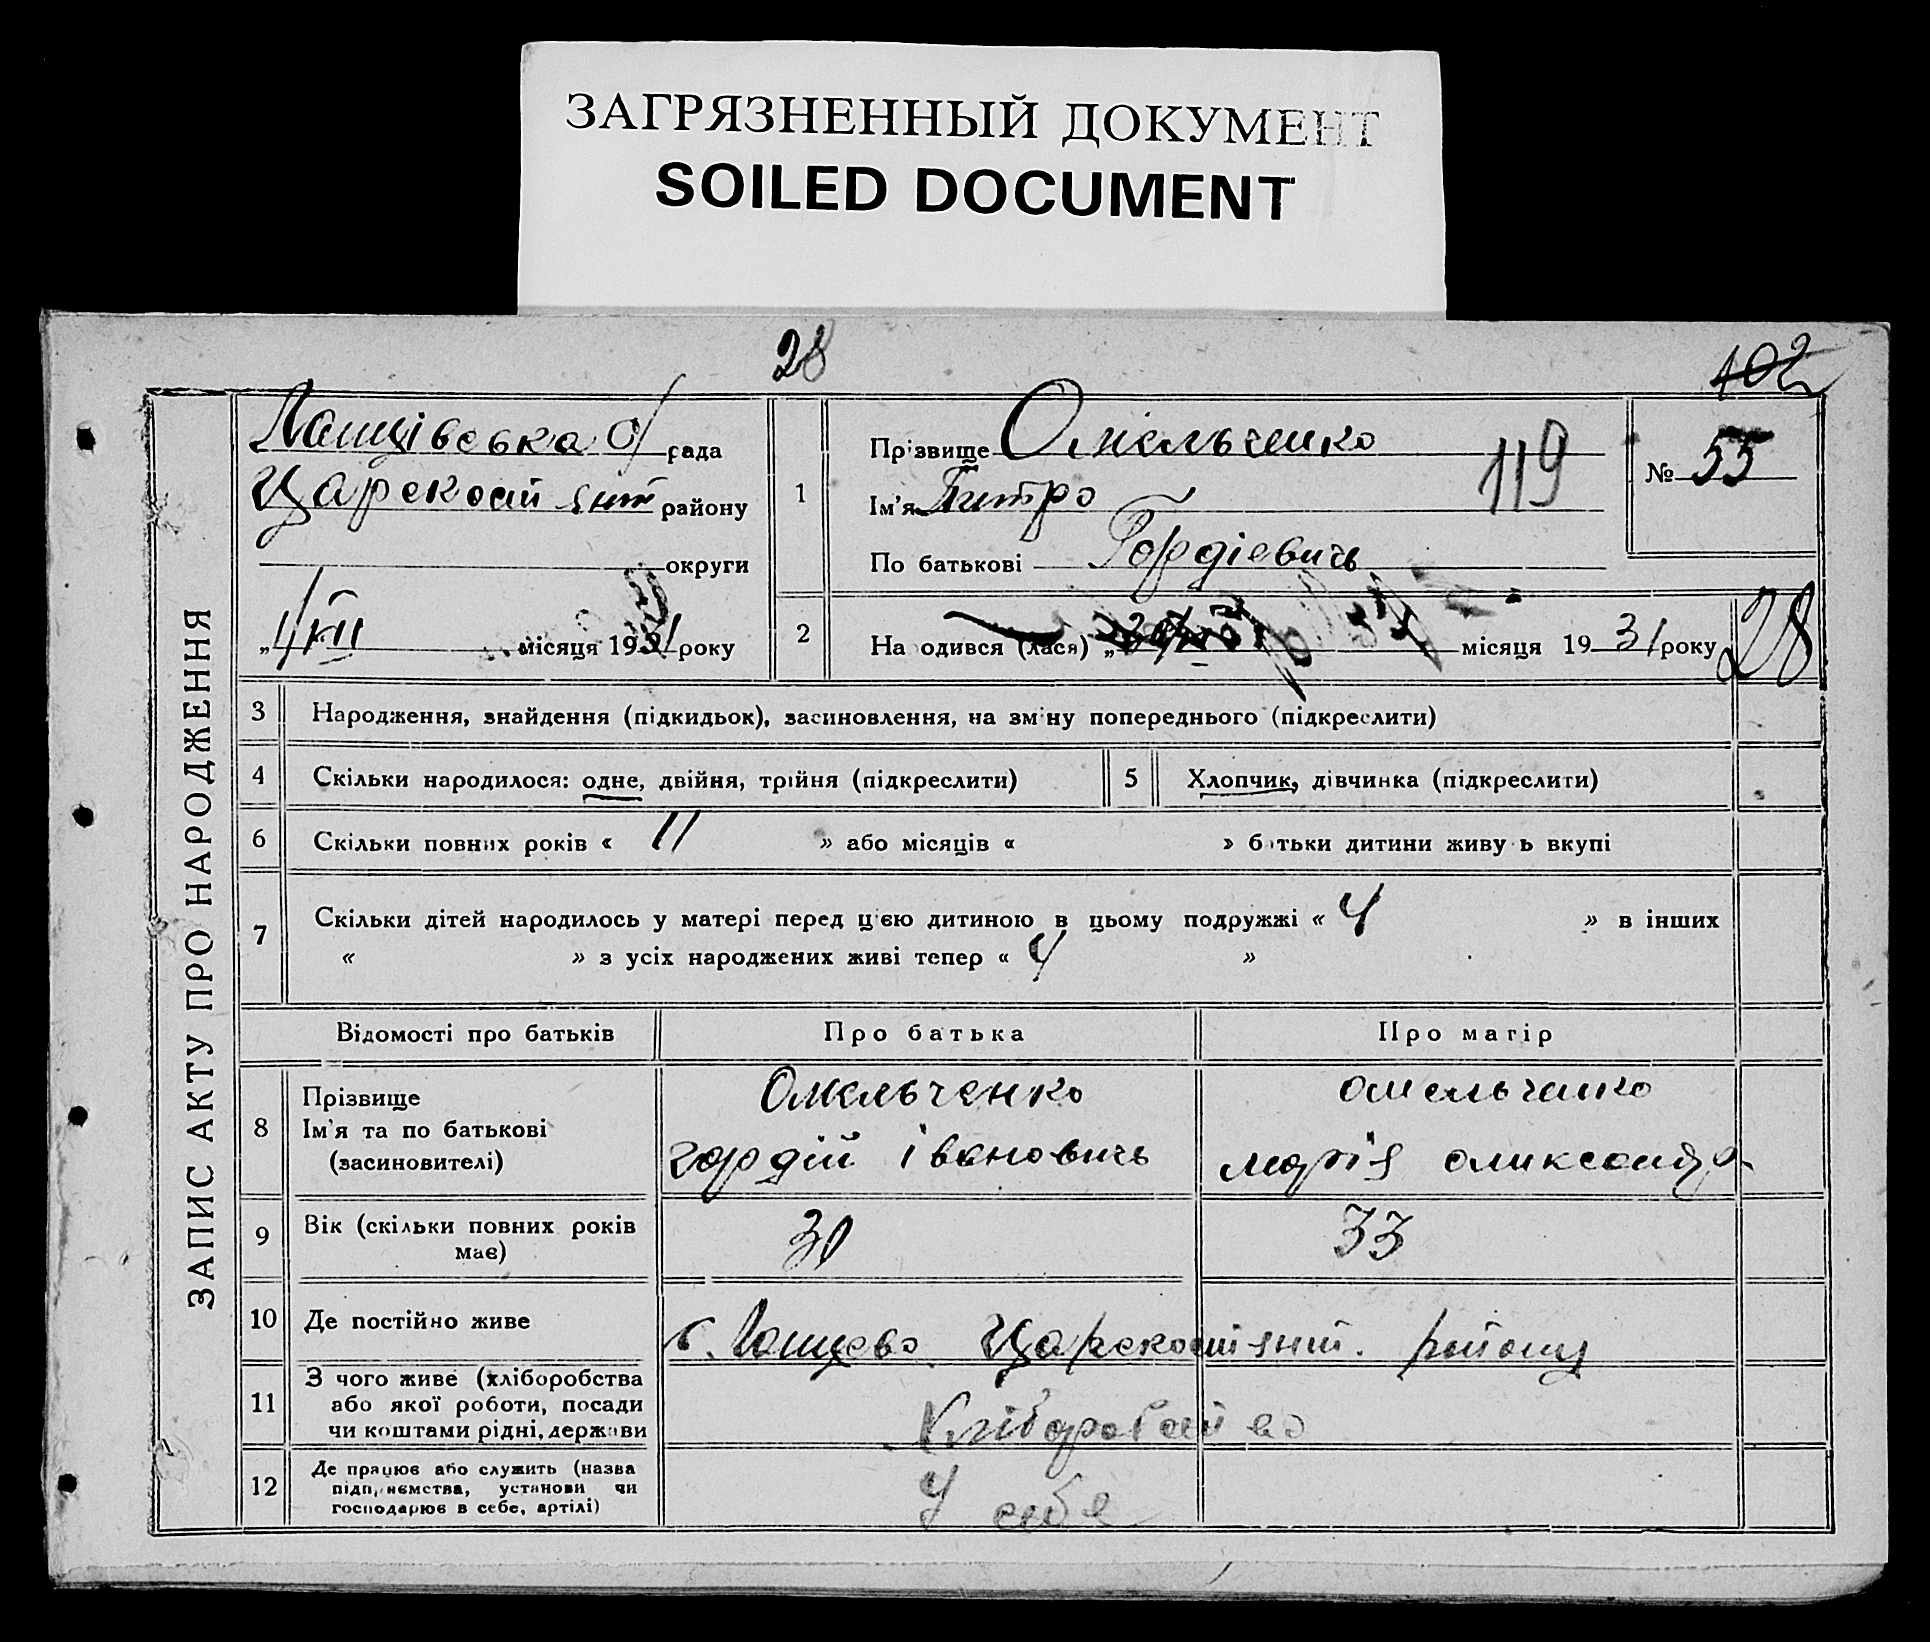 ЗАГРЯЗНЕННЫЙ ДОКУМЕНТ
SOILED DOCUMENT
28
102
ЗАПИС АКТУ ПРО НАРОДЖЕННЯ
Лащівська с/рада
району
округи
місяця 1931 року
1
Прізвище Омельченко
Ім'я Питро
По батькові Гордіевичь
119
№ 55
2
Народився (лася) „ місяця 1931 року
28
3 Народження, знайдення (підкидьок), засиновлення, на зміну попереднього (підкреслити)
4 Скільки народилося: одне, двійня, трійня (підкреслити) 5 Хлопчик, дівчинка (підкреслити)
6 Скільки повних років « 11 » або місяців « » батьки дитини живуть вкупі
7 Скільки дітей народилось у матері перед цією дитиною в цьому подружжі « 4 » в інших
« » з усіх народжених живі тепер « 4 »
Відомості про батьків Про батька Про матір
8 Прізвище Омельченко омельченко
Ім'я та по батькові гордій івановичь марія
(засиновителі)
9 Вік (скільки повних років має) 30 33
10 Де постійно живе с. Лащево району
11 З чого живе (хліборобства
або якої роботи, посади
чи коштами рідні, держави
12 Де працює або служить (назва
підприємства, установи чи
господарює в себе, артілі)
У себе